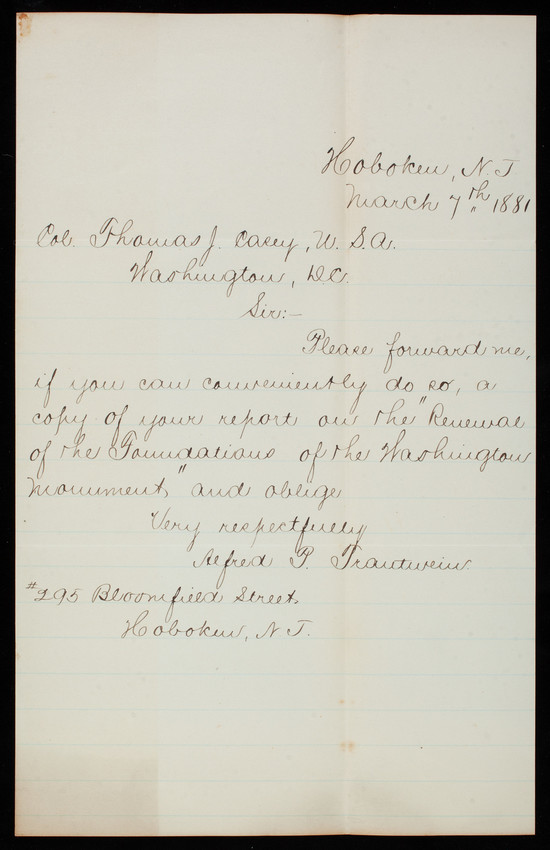 Hoboken, N. J
March 7th 1881
Col. Thomas J. Casey, U. S. A.
Washington, D.C.
Sir:-
Please forward me,
if you can conveniently do so, a
copy of your report on the "Renewal
of the Foundations of the Washington
Monument" and oblige
Very respectfully
Alfred P. Trautwein
#295 Bloomfield Street,
Hoboken, N. J.